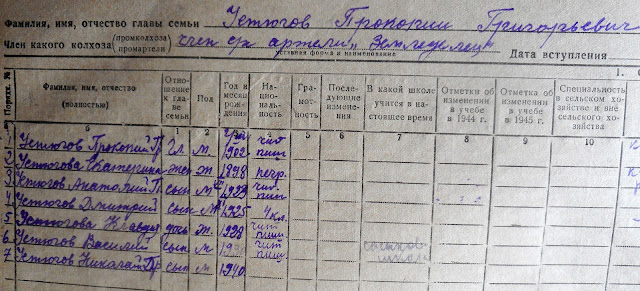 Фамилия, имя, отчество главы семьи Устюгов Прокопий Григорьевич
Член какого колхоза (промколхоза/промартели) член с/х артели „Земледелец"
уставная форма и наименование
Дата вступления
1.
Порядк. №
Фамилия, имя, отчество (полностью)
Отношение к главе семьи
Пол
Год и месяц рождения
Национальность
Грамотность
Последующие изменения
В какой школе учится в настоящее время
Отметки об изменении в учебе в 1944 г.
Отметка об изменении в учебе в 1945 г.
Специальность в сельском хозяйстве и вне сельского хозяйства
б 1 2 3 4 5 6 7 8 9 10
1 Устюгов Прокопий Гр гл. м. 1902 чит пиш
2 Устюгова Екатерина жен ж 1898 негр.
3 Устюгов Анатолий П. сын м 1923 чит. пиш
4 Устюгов Дмитрий сын м 1925 4 кл.
5 Устюгова Клавдия дочь ж. 1928 чит пиш
6 Устюгов Василий сын м. чит пиш школа
7 Устюгов Николай Пр сын м 1940